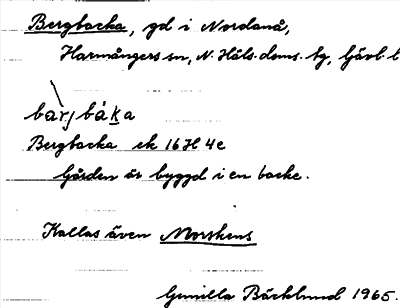 Bergbacka, gd i Nordanå,
Harmångers sn, N. Häls. doms. tg, Gävb. l
bàrjbáka
Bergbacka ek 16H 4e
Gården är byggd i en backe.
Kallas även Morskens
Gunilla Bäcklund 1965.